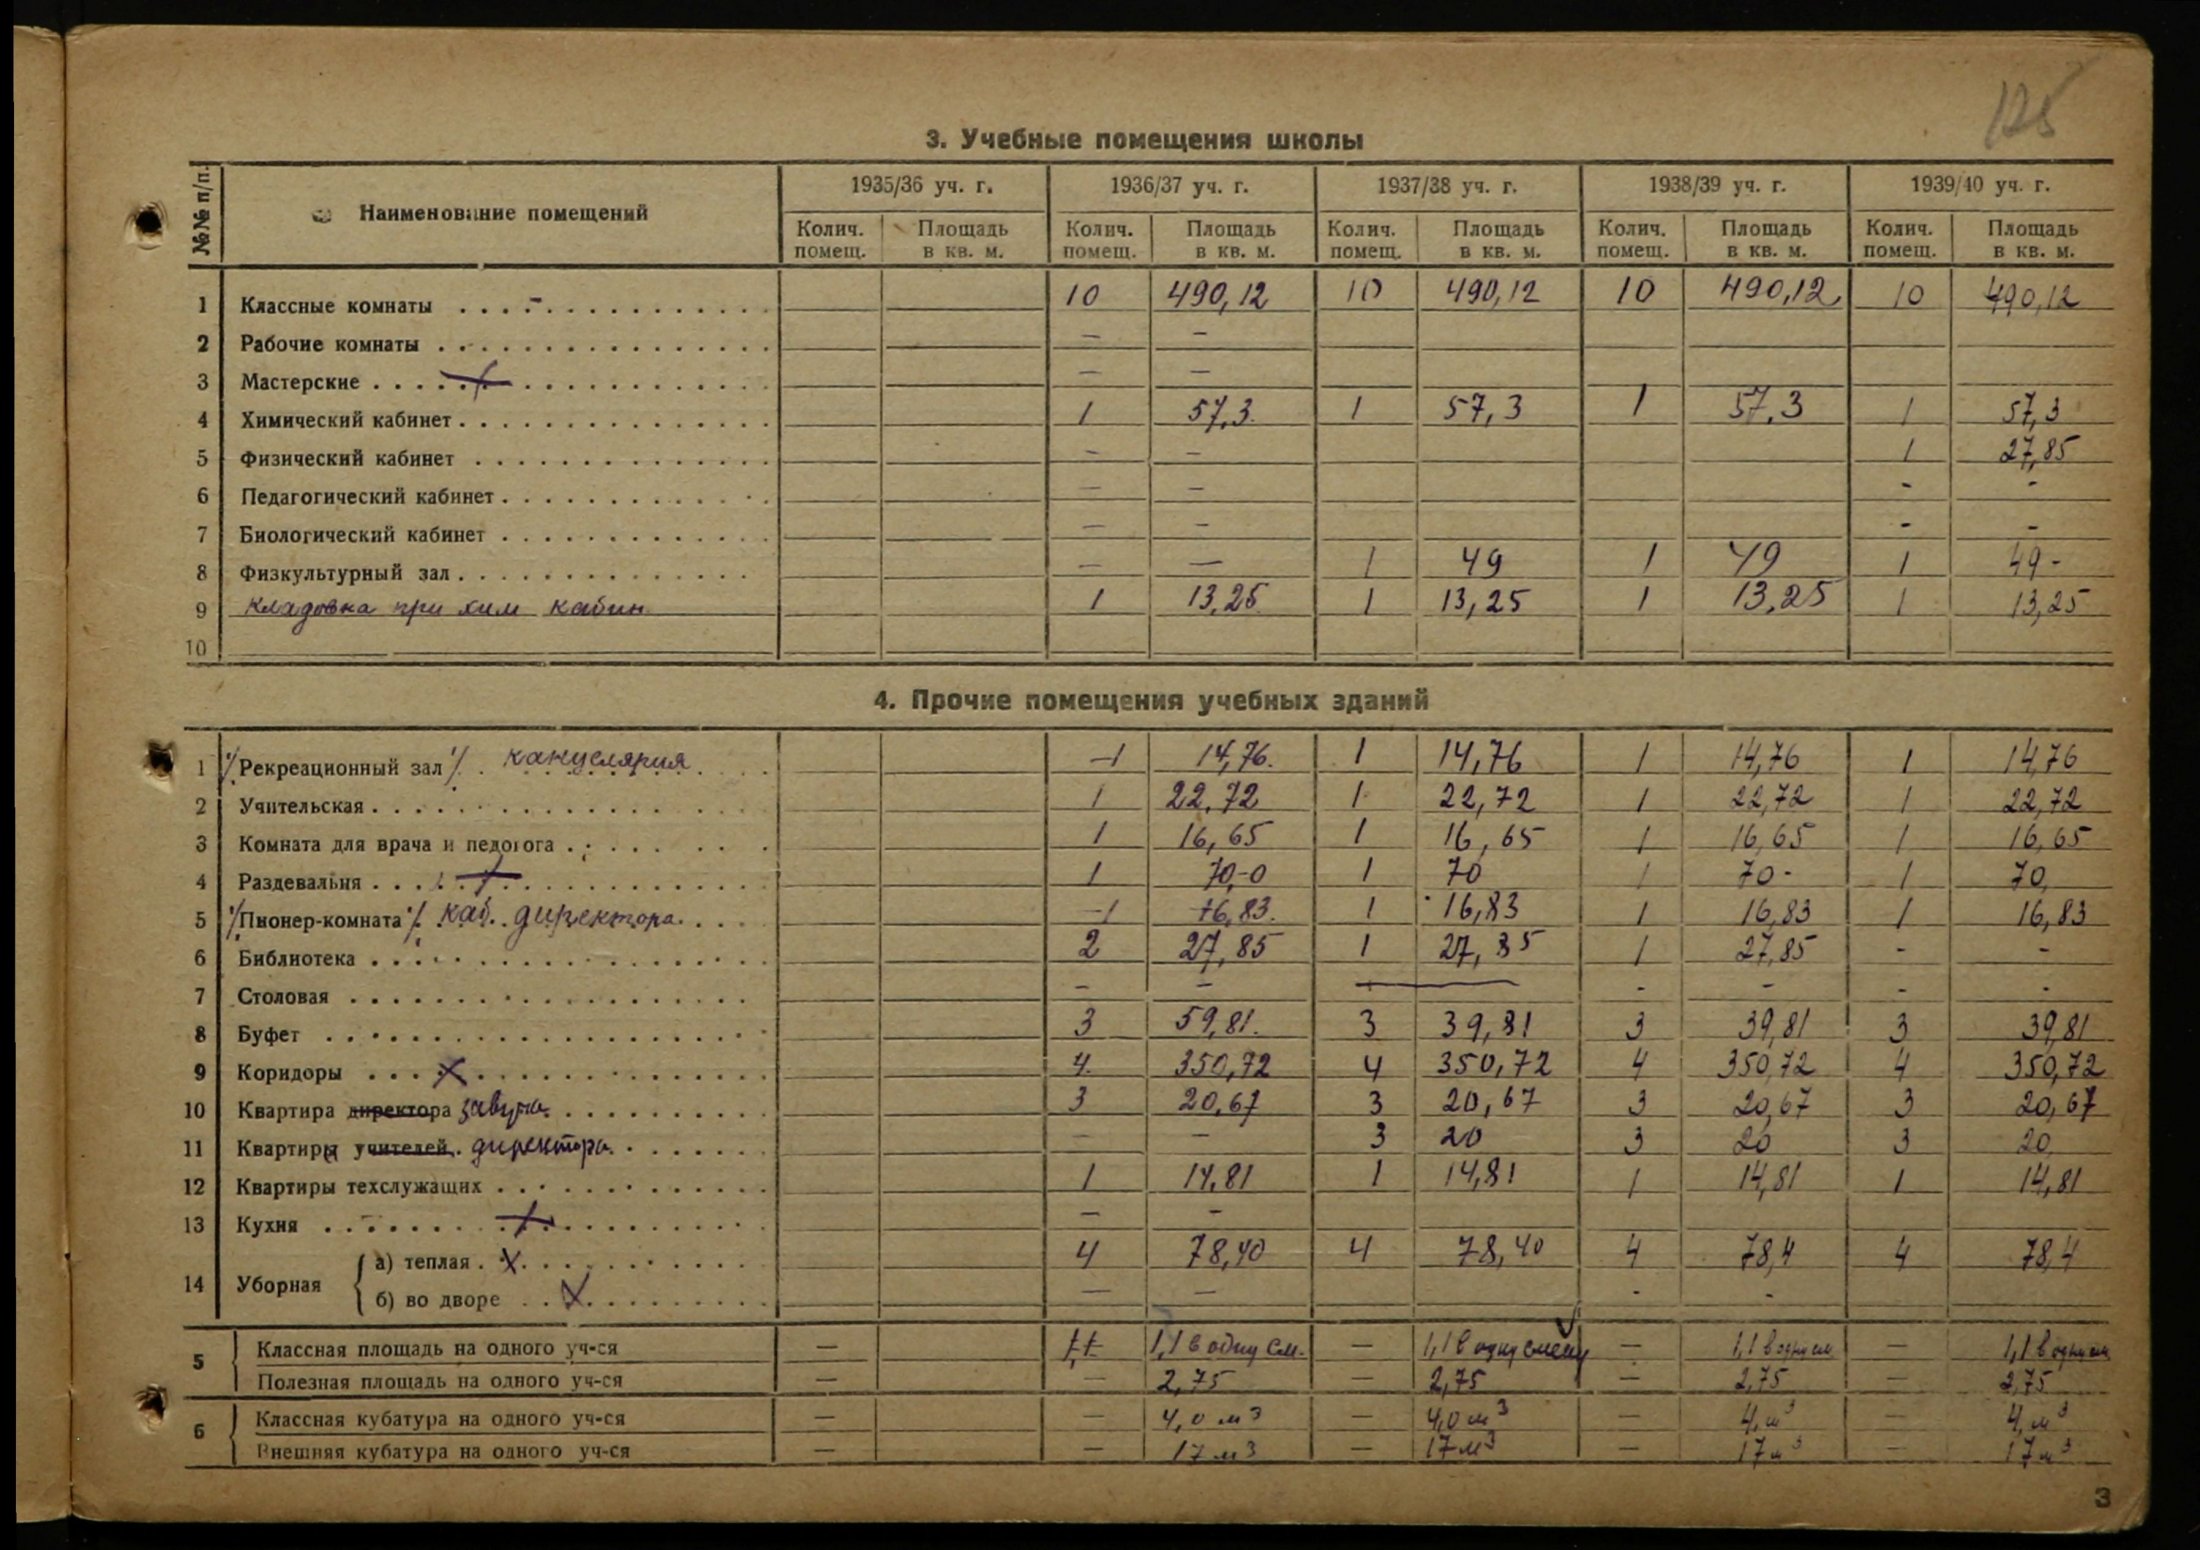 125
3. Учебные помещения школы
№№ п/п. Наименование помещений 1935/36 уч. г. 1936/37 уч. г. 1937/38 уч. г. 1938/39 уч. г. 1939/40 уч. г.
Колич. помещ. Площадь в кв. м. Колич. помещ. Площадь в кв. м. Колич. помещ. Площадь в кв. м. Колич. помещ. Площадь в кв. м. Колич. помещ. Площадь в кв. м.
1 Классные комнаты 10 490,12 10 490,12 10 490,12 10 490,12
2 Рабочие комнаты — —
3 Мастерские — —
4 Химический кабинет 1 57,3. 1 57,3 1 57,3 1 57,3
5 Физический кабинет — — 1 27,85
6 Педагогический кабинет — — - -
7 Биологический кабинет — — - -
8 Физкультурный зал — — 1 49 1 49 1 49-
9 Кладовка при хим кабин. 1 13,25 1 13,25 1 13,25 1 13,25
10
4. Прочие помещения учебных зданий
1 Рекреационный зал канцелярия 1 14,76. 1 14,76 1 14,76 1 14,76
2 Учительская 1 22,72 1 22,72 1 22,72 1 22,72
3 Комната для врача и педолога 1 16,65 1 16,65 1 16,65 1 16,65
4 Раздевальня 1 70,-0 1 70 1 70- 1 70,
5 Пионер-комната каб. директора 1 16,83. 1 16,83 1 16,83 1 16,83
6 Библиотека 2 27,85 1 27,85 1 27,85 - -
7 Столовая — — — - - - -
8 Буфет 3 59,81. 3 39,81 3 39,81 3 39,81
9 Коридоры 4. 350,72 4 350,72 4 350,72 4 350,72
10 Квартира директора завуча 3 20,67 3 20,67 3 20,67 3 20,67
11 Квартиры учителей. директора — — 3 20 3 20 3 20,
12 Квартиры техслужащих 1 14,81 1 14,81 1 14,81 1 14,81
13 Кухня — —
14 Уборная а) теплая 4 78,40 4 78,40 4 78,4 4 78,4
б) во дворе — — - -
5 Классная площадь на одного уч-ся — 1,1 1,1 в одну см. — 1,1 в одну смену — 1,1 в одну см — 1,1 в одну см
Полезная площадь на одного уч-ся — — 2,75 — 2,75 — 2,75 — 2,75
6 Классная кубатура на одного уч-ся — — 4,0 м³ — 4,0 м³ — 4,м³ — 4,м³
Внешняя кубатура на одного уч-ся — — 17 м³ — 17 м³ — 17 м³ — 17 м³
3